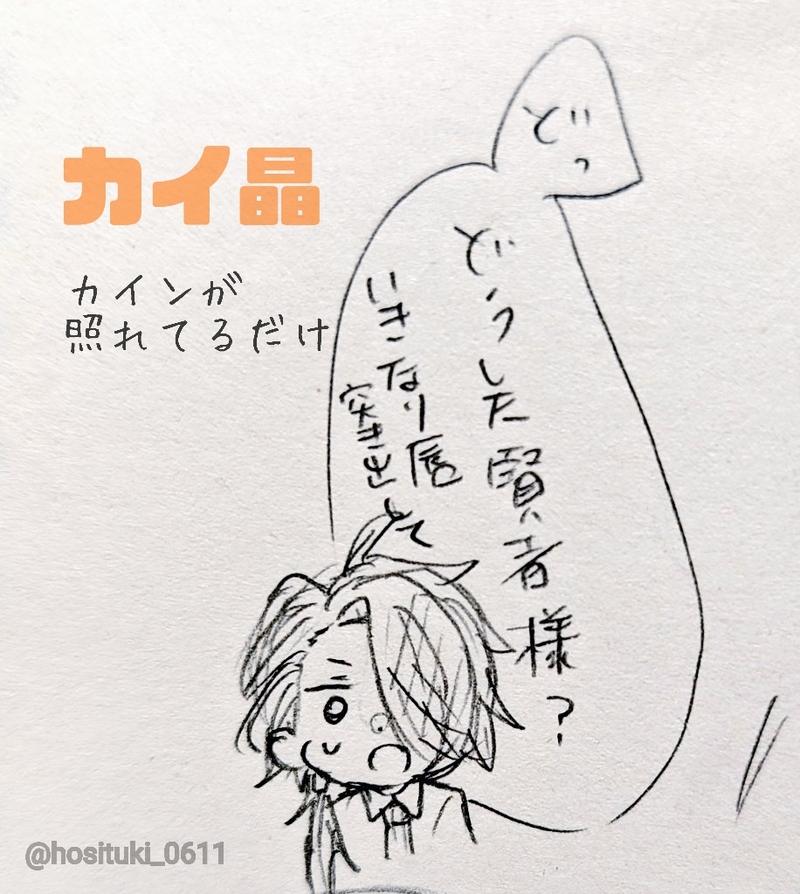 カイ晶
カインが
照れてるだけ
どっ
どうした賢者様?
いきなり唇
突き出して
@hosituki_0611